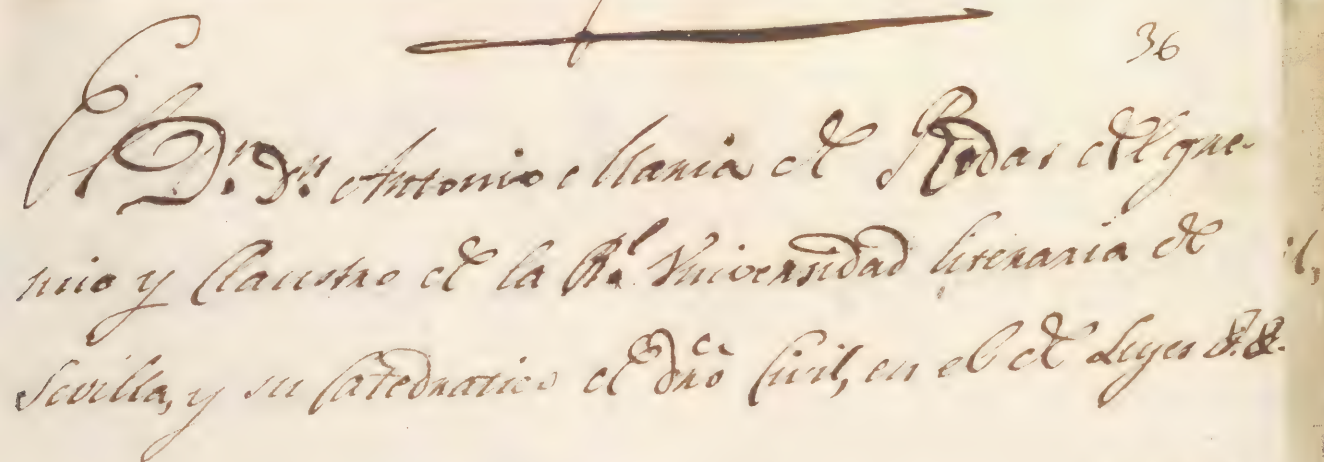 36
El D.r D.n Antonio Maria de Rodas del gre-
mio y Claustro de la R.l Universidad literaria de
Sevilla, y su Catedratico de dro Civil, en el de Leyes &.&.